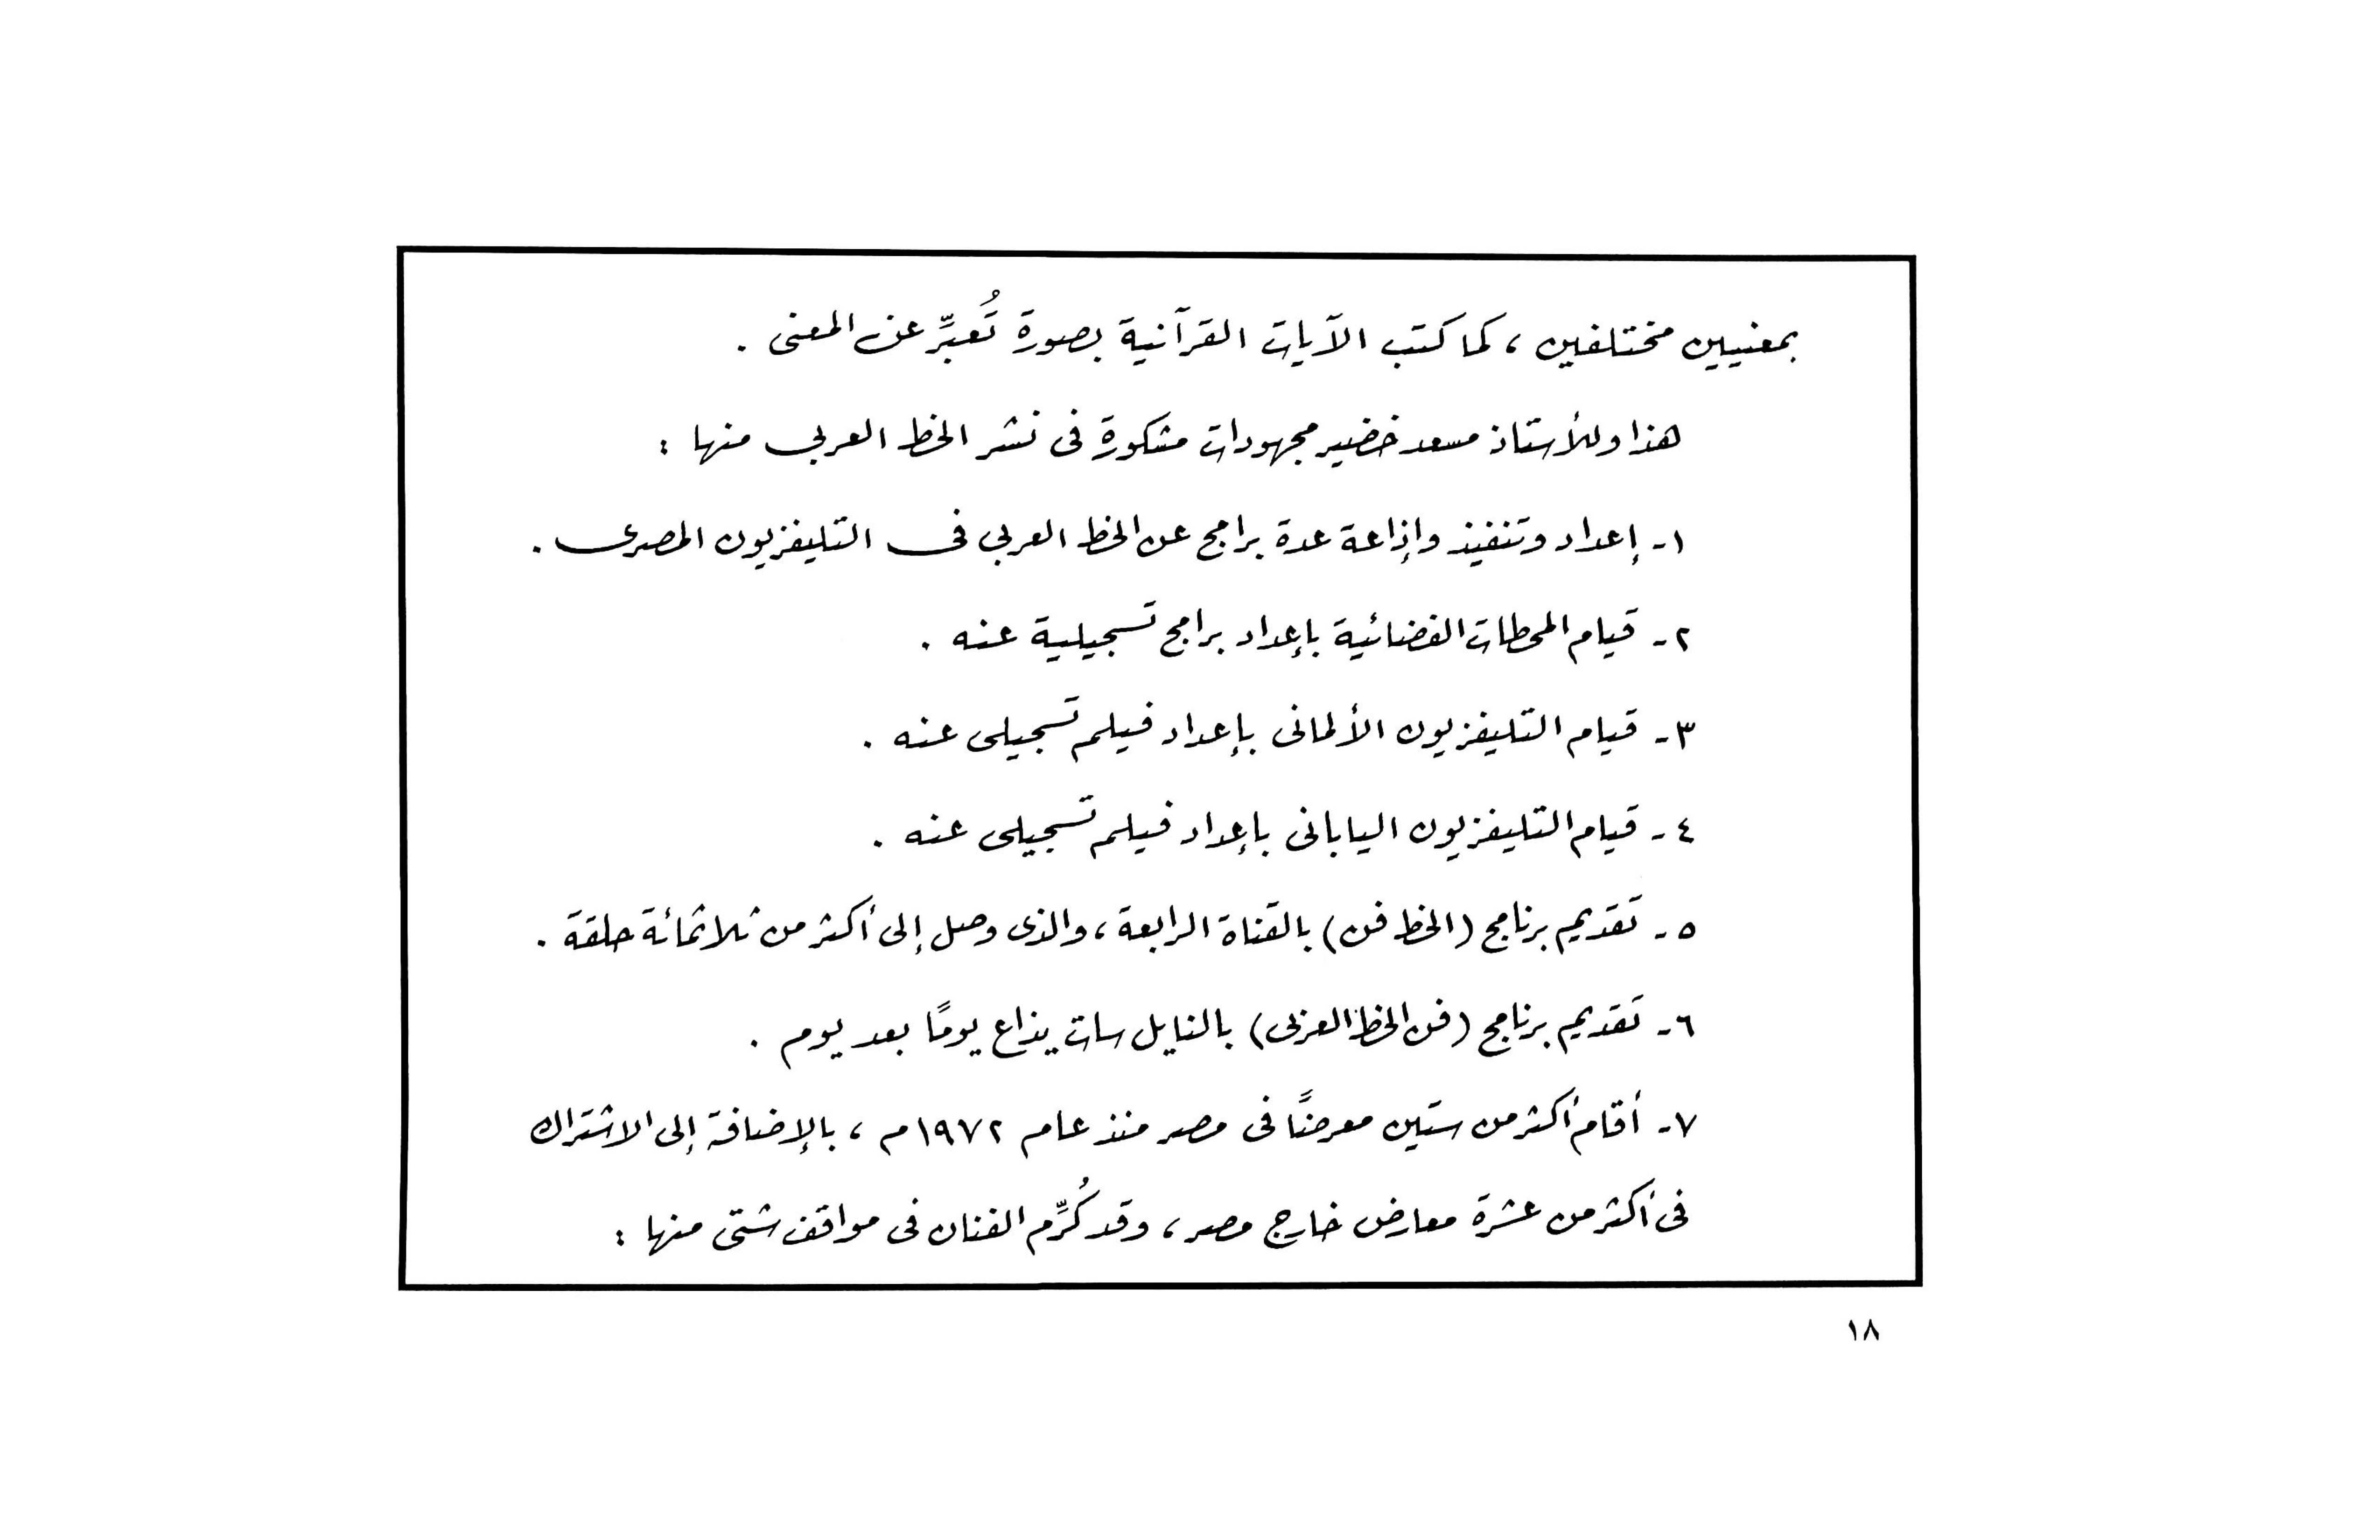 بمعنيين مختلفين ، كما كتب الآيات القرآنية بصورة تُعبِّر عن المعنى .
هذا وللأستاذ مسعد خضير مجهودات مشكورة فى نشر الخط العربى منها :
١- إعداد وتنفيذ وإذاعة عدة برامج عن الخط العربى فى التليفزيون المصرى .
٢- قيام المحطات الفضائية بإعداد برامج تسجيلية عنه .
٣- قيام التليفزيون الألمانى بإعداد فيلم تسجيلى عنه .
٤- قيام التليفزيون اليابانى بإعداد فيلم تسجيلى عنه .
٥- تقديم برنامج (الخط فن) بالقناة الرابعة ، والذى وصل إلى أكثر من ثلاثمائة حلقة .
٦- تقديم برنامج (فن الخط العربى) بالنايل سات يذاع يومًا بعد يوم .
٧- أقام أكثر من ستين معرضًا فى مصر منذ عام ١٩٧٢م ، بالإضافة إلى الاشتراك
فى أكثر من عشرة معارض خارج مصر ، وقد كُرِّم الفنان فى مواقف شتى منها :
١٨